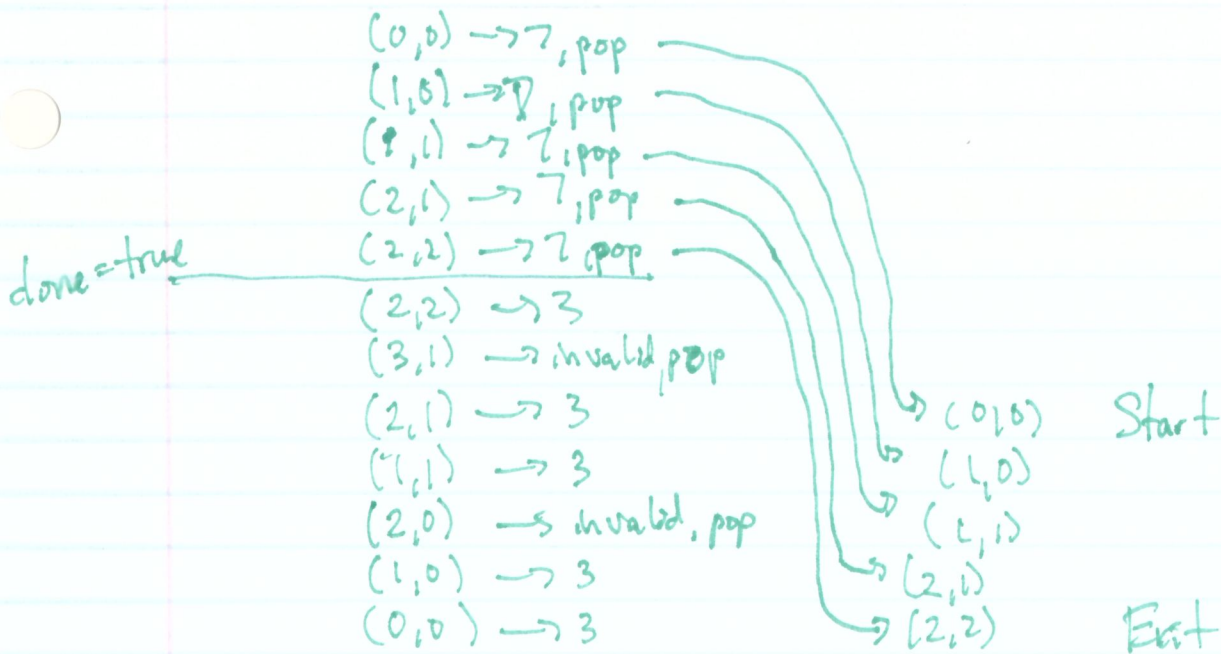 (0,0) → 7, pop
(1,0) → 7, pop
(1,1) → 7, pop
(2,1) → 7, pop
(2,2) → 7, pop
done = true
(2,2) → 3
(3,1) → invalid, pop
(2,1) → 3
(1,1) → 3
(2,0) → invalid, pop
(1,0) → 3
(0,0) → 3
(0,0) Start
(1,0)
(1,1)
(2,1)
(2,2) Exit